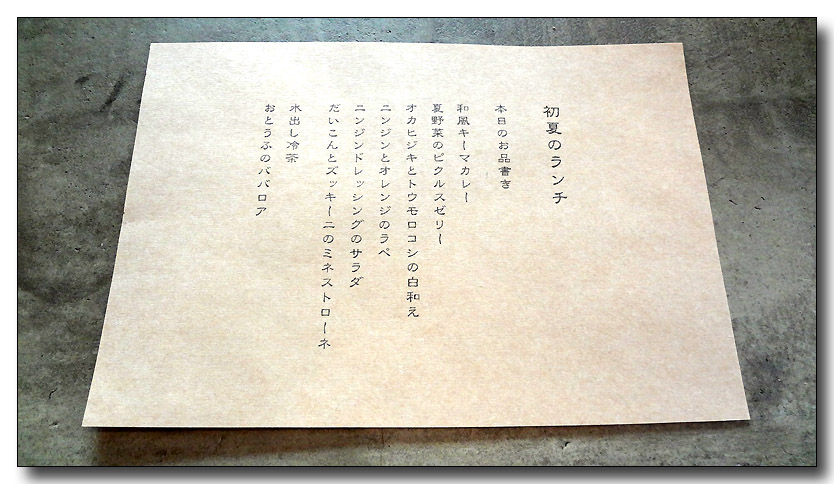 初夏のランチ
本日のお品書き
和風キーマカレー
夏野菜のピクルスゼリー
オカヒジキとトウモロコシの白和え
ニンジンとオレンジのラペ
ニンジンドレッシングのサラダ
だいこんとズッキーニのミネストローネ
水出し冷茶
おとうふのババロア